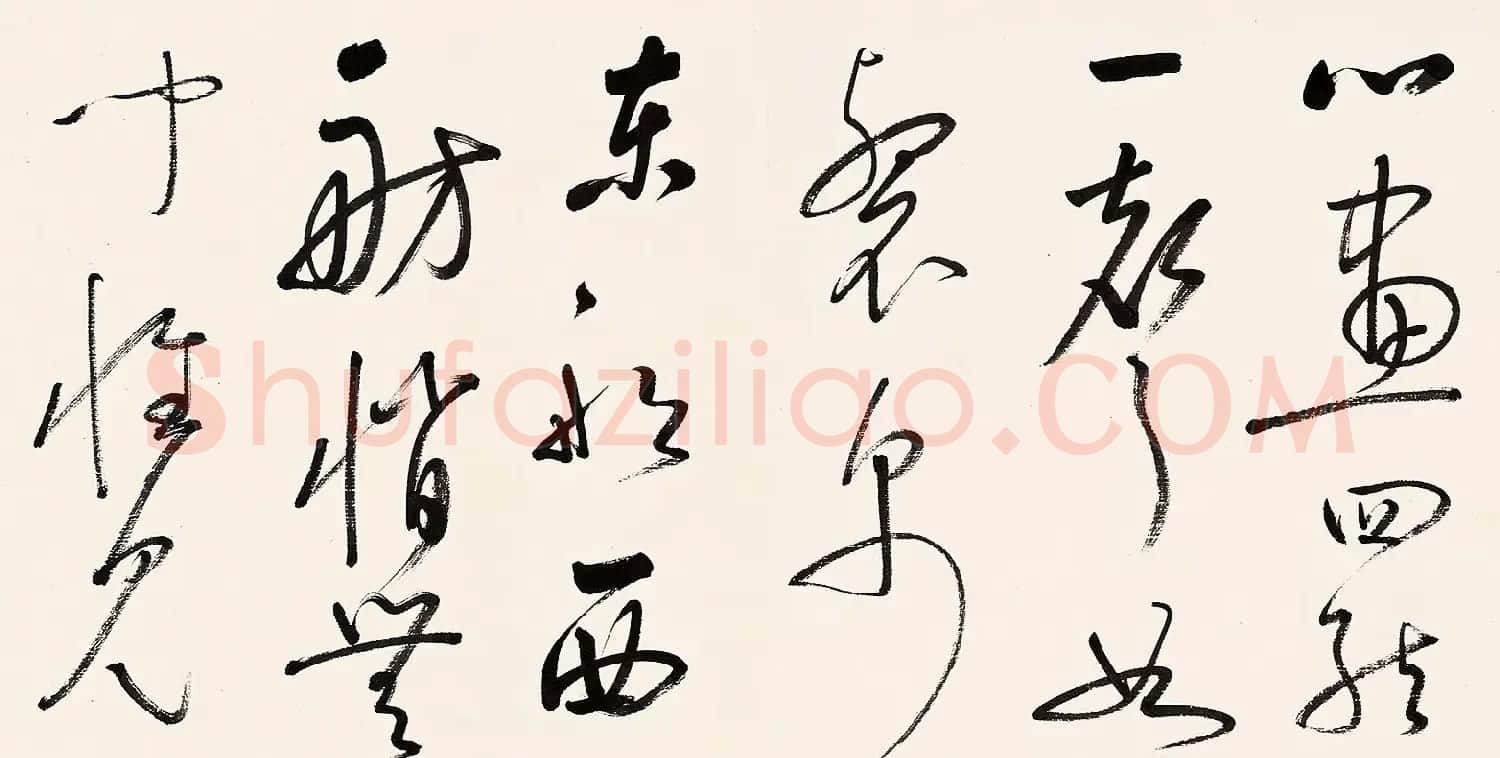 心畫四弦
一聲如
裂帛
東船西
舫悄無
言惟見
Shufaziliao.COM